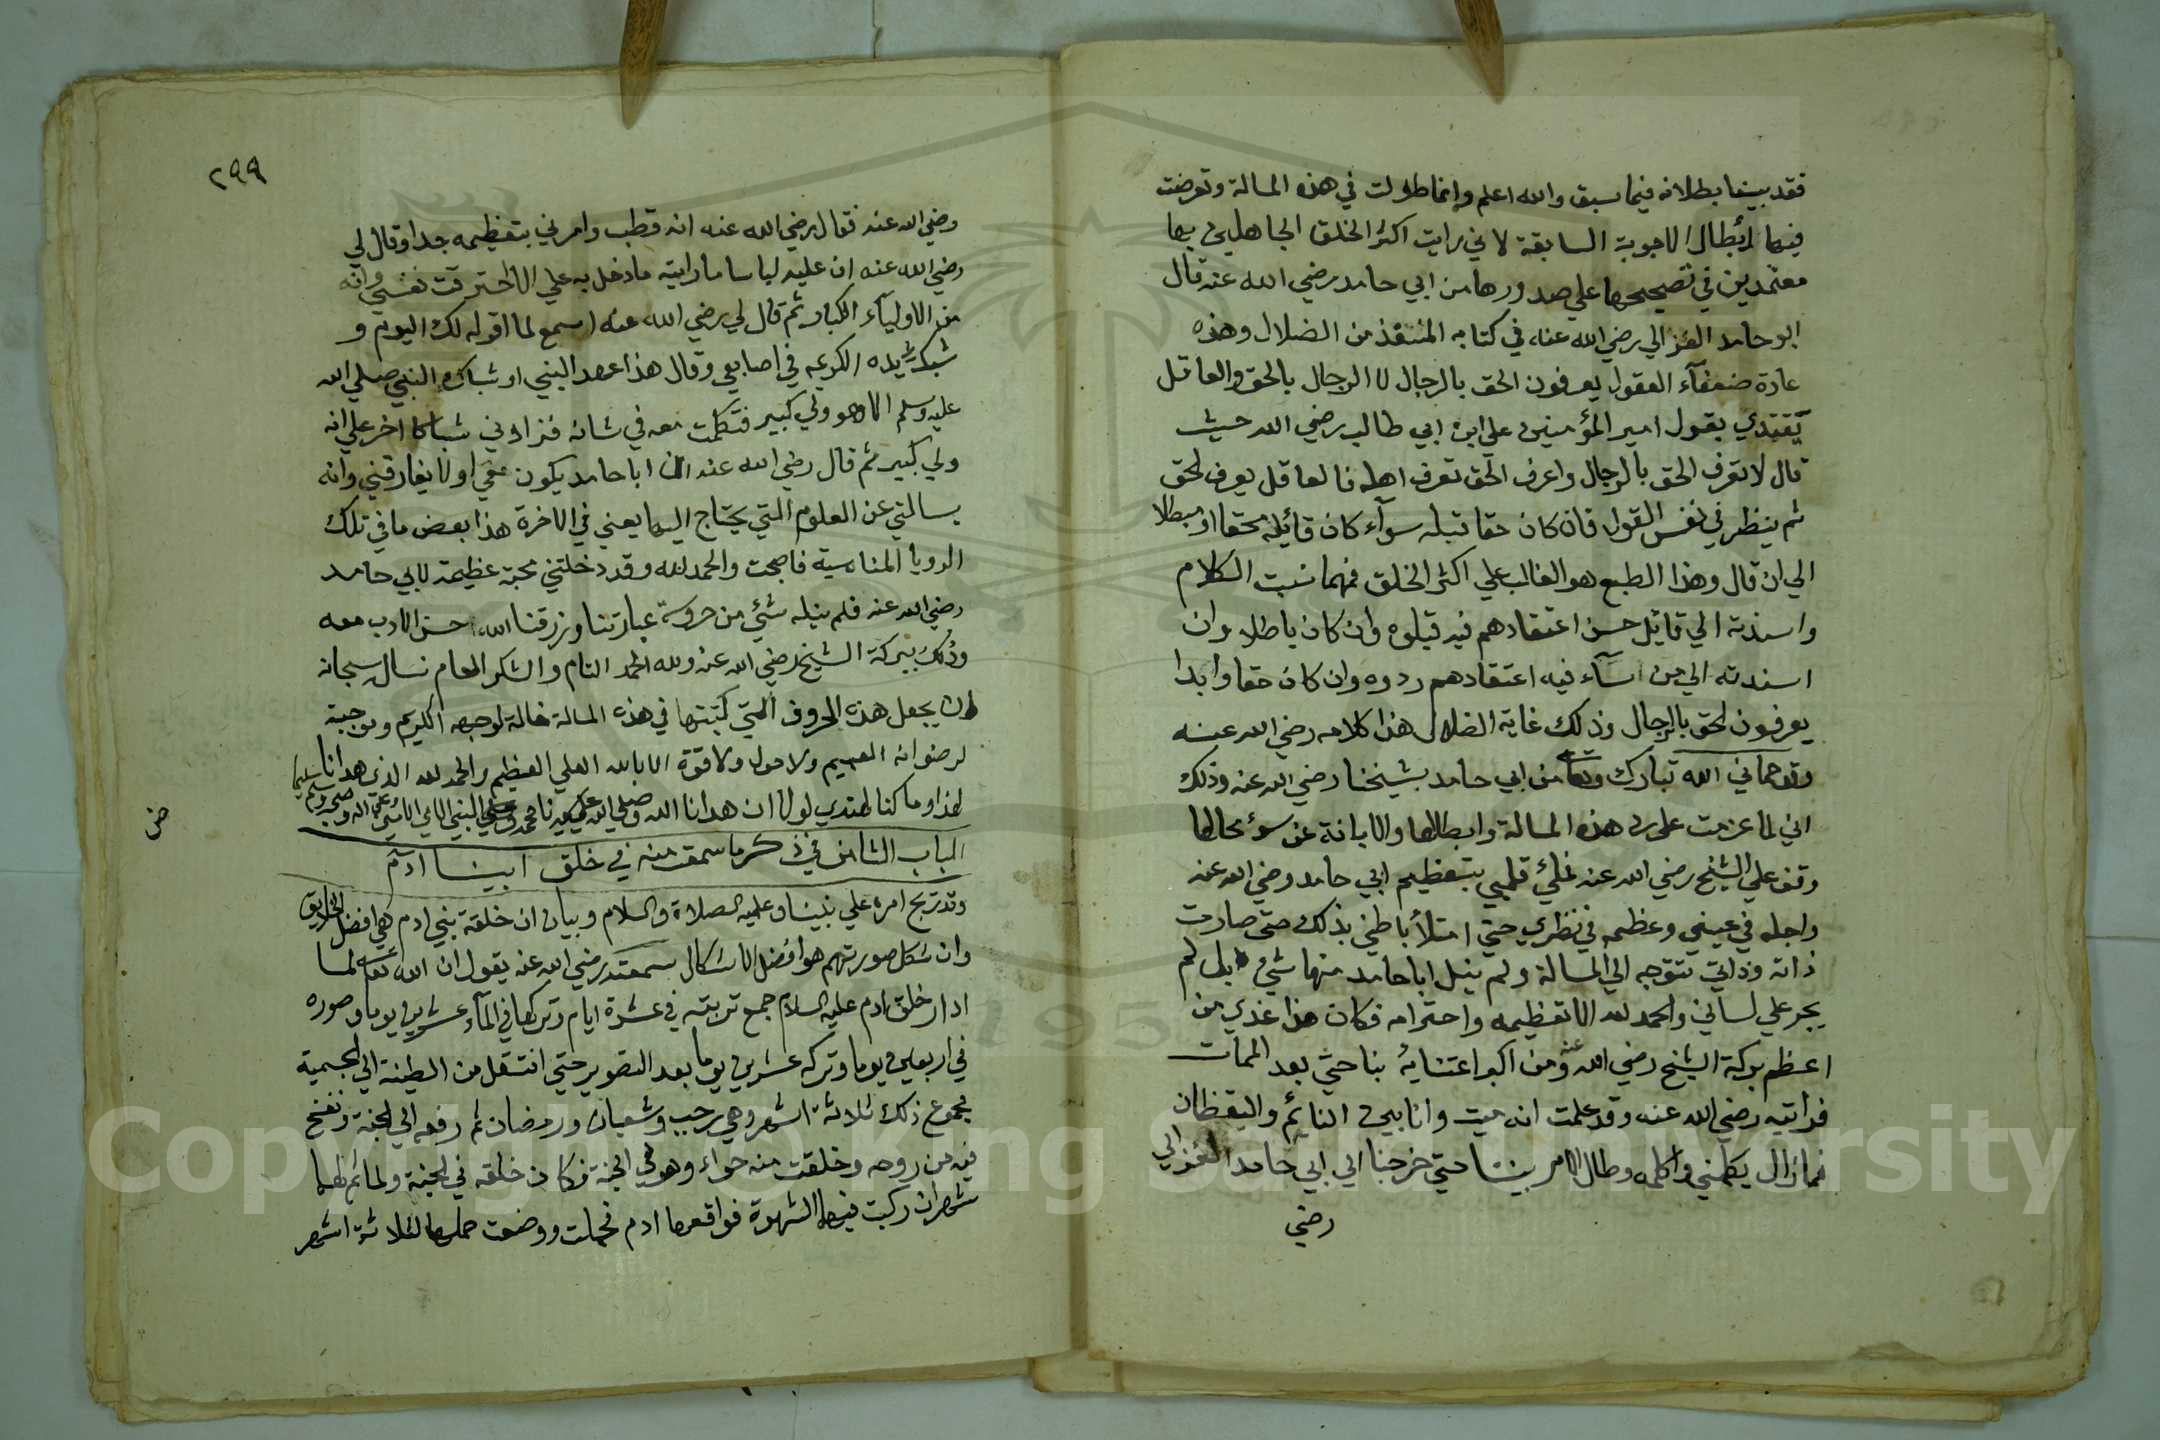 فقد بينا بطلانه فيما سبق والله اعلم وانما طولت في هذه المسالة وتعرضت
فيها لابطال الاجوبة السابقة لاني رايت اكثر الخلق الجاهلين بها
معتمدين في تصحيحها علي صدورها من ابي حامد رضي الله عنه قال
ابو حامد الغزالي رضي الله عنه في كتابه المنقذ من الضلال وهذه
عادة ضعفآء العقول يعرفون الحق بالرجال لا الرجال بالحق والعاقل
يقتدي بقول امير المؤمنين علي ابن ابي طالب رضي الله حيث
قال لا تعرف الحق بالرجال واعرف الحق تعرف اهله فالعاقل يعرف الحق
ثم ينظر في نفس القول فان كان حقا قبله سوآء كان قائله محقا او مبطلا
الي ان قال وهذا الطبع هو الغالب علي اكثر الخلق فمهما نسبت الكلام
واسندته الي قائل حسن اعتقادهم فيه قبلوه وان كان باطلا وان
اسندته الي من اسآء فيه اعتقادهم ردوه وان كان حقا وابدا
يعرفون الحق بالرجال وذلك غاية الضلال هذا كلامه رضي الله عنه
وقد حماني الله تبارك وتعا من ابي حامد بشيخنا رضي الله عنه وذلك
اني لما عزمت علي رد هذه المسالة وابطالها والابانة عن سوء حالها
وقف علي الشيخ رضي الله عنه فملئ قلبي بتعظيم ابي حامد رضي الله عنه
واجله في عيني وعظمه في نظري حتي امتلأ باطني بذلك حتي صارت
ذاته وذاتي تتوجه الي المسالة ولم ينل ابا حامد منها شئ بل لم
يجر علي لساني والحمد لله الا تعظيمه واحترامه فكان هذا عندي من
اعظم بركة الشيخ رضي الله عنه ومن اكبر اعتنايه بنا حتي بعد الممات
فرايته رضي الله عنه وقد علمت انه ميت وانا بين النائم واليقظان
فمازال يكلمني واكلمه وطال الامر بيننا حتي خرجنا الي ابي حامد الغزالي
رضي
٢٩٩
رضي الله عنه فقال رضي الله عنه انه قطب وامرني بتعظيمه جدا وقال لي
رضي الله عنه ان عليه لباسا ما رايته ما دخل به علي الا احترقت نفسي وانه
من الاوليآء الكبار ثم قال لي رضي الله عنه اسمع لما اقوله لك اليوم و
شبك يده الكريمه في اصابعي وقال هذا عهد النبي او شباك النبي صلي الله
عليه وسلم الا وهو ولي كبير فتكلمت معه في شانه فزادني شباكا اخر علي انه
ولي كبير ثم قال رضي الله عنه ان ابا حامد يكون معي او لا يفارقني وانه
يسالني عن العلوم التي يحتاج اليها يعني في الاخرة هذا بعض ما في تلك
الرويا المنامية فاصبحت والحمد لله وقد دخلتني محبة عظيمة لابي حامد
رضي الله عنه فلم ينله شئ من حروشة عبارتنا ورزقنا الله حسن الادب معه
وذلك ببركة الشيخ رضي الله عنه ولله الحمد التام والشكر العام نسال سبحانه
ان يجعل هذه الحروف التي كتبتها في هذه المسالة خالصة لوجهه الكريم وموجبة
لرضوانه العميم ولا حول ولا قوة الا بالله العلي العظيم والحمد لله الذي هدانا
لهذا وما كنا لنهتدي لولا ان هدانا الله وصلي الله علي سيدنا محمد النبي الامي الامين وعلي اله وصحبه وسلم تسليما
الباب الثامن في ذكر ما سمعت منه في خلق ابينا ادم
وتدريج امره علي نبينا وعليه الصلاة والسلام وبيان ان خلقة بني ادم هي افضل الخلايق
وان شكل صورتهم هو افضل الاشكال سمعته رضي الله عنه يقول ان الله تعا لما
اراد خلق ادم عليه السلام جمع تربته في عشرة ايام وتركها في المآء عشرين يوما وصوره
في اربعين يوما وتركه عشرين يوما بعد التصوير حتي انتقل من الطينة الي الجسمية
مجموع ذلك ثلاثة اشهر وهي رجب وشعبان ورمضان ثم رفعه الي الجنة ونفخ
فيه من روحه وخلقت منه حواء وهو في الجنة فكان خلقه في الجنة ولما تم لها
شهران ركبت فيها الشهوة فواقعها ادم فحملت ووضعت حملها لثلاثة اشهر
Copyright © King Saud University